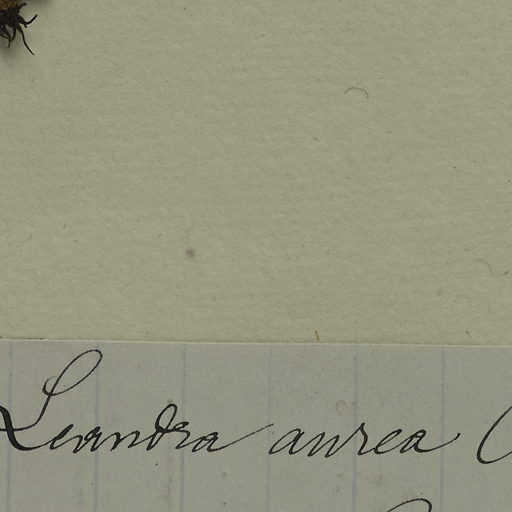 Leandra aurea (